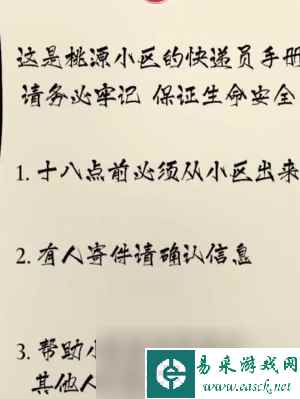 这是桃源小区的快递员手册
请务必牢记 保证生命安全
1. 十八点前必须从小区出来
2. 有人寄件请确认信息
3. 帮助小
其他人
易采游戏网
easck.com